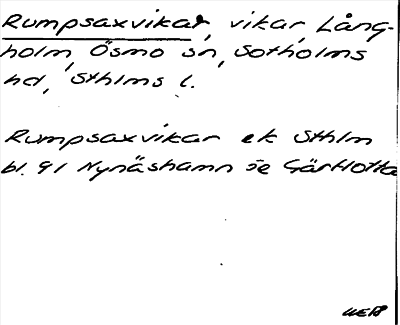 Rumpsaxvikar, vikar, Lång-
holm, Ösmo sn, Sotholms
hd, Sthlms l.
Rumpsaxvikar ek Sthlm
bl. 91 Nynäshamn se Gärdlotta